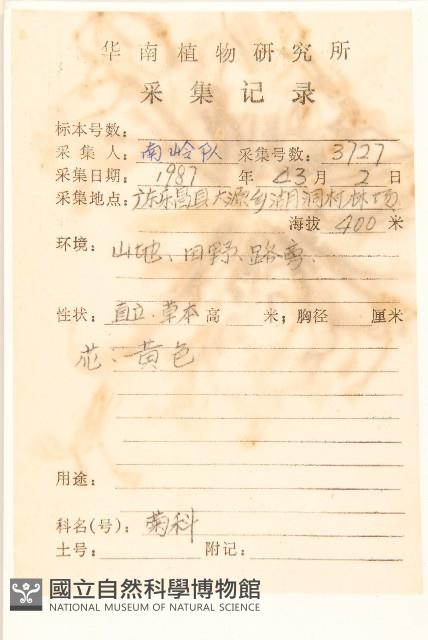 华南植物研究所
采集记录
标本号数：
采集人：南岭队 采集号数：3727
采集日期：1987 年 3 月 2 日
采集地点：广东乐昌县大源乡湖洞村林场
海拔 400 米
环境：山地、田野、路旁、
性状：直立、草本 高 米；胸径 厘米
花：黄色
用途：
科名(号)：菊科
土号： 附记：
國立自然科學博物館
NATIONAL MUSEUM OF NATURAL SCIENCE